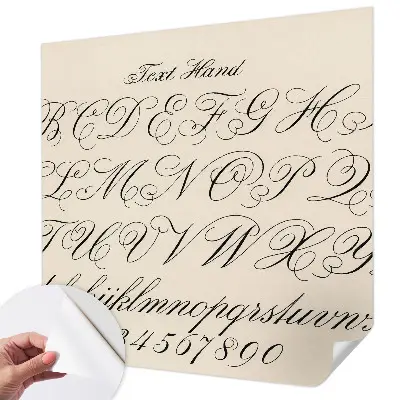 Text Hand
B C D E F G H
L M N O P Q
T U V W X Y
hijklmnopqrstuvw
4567890